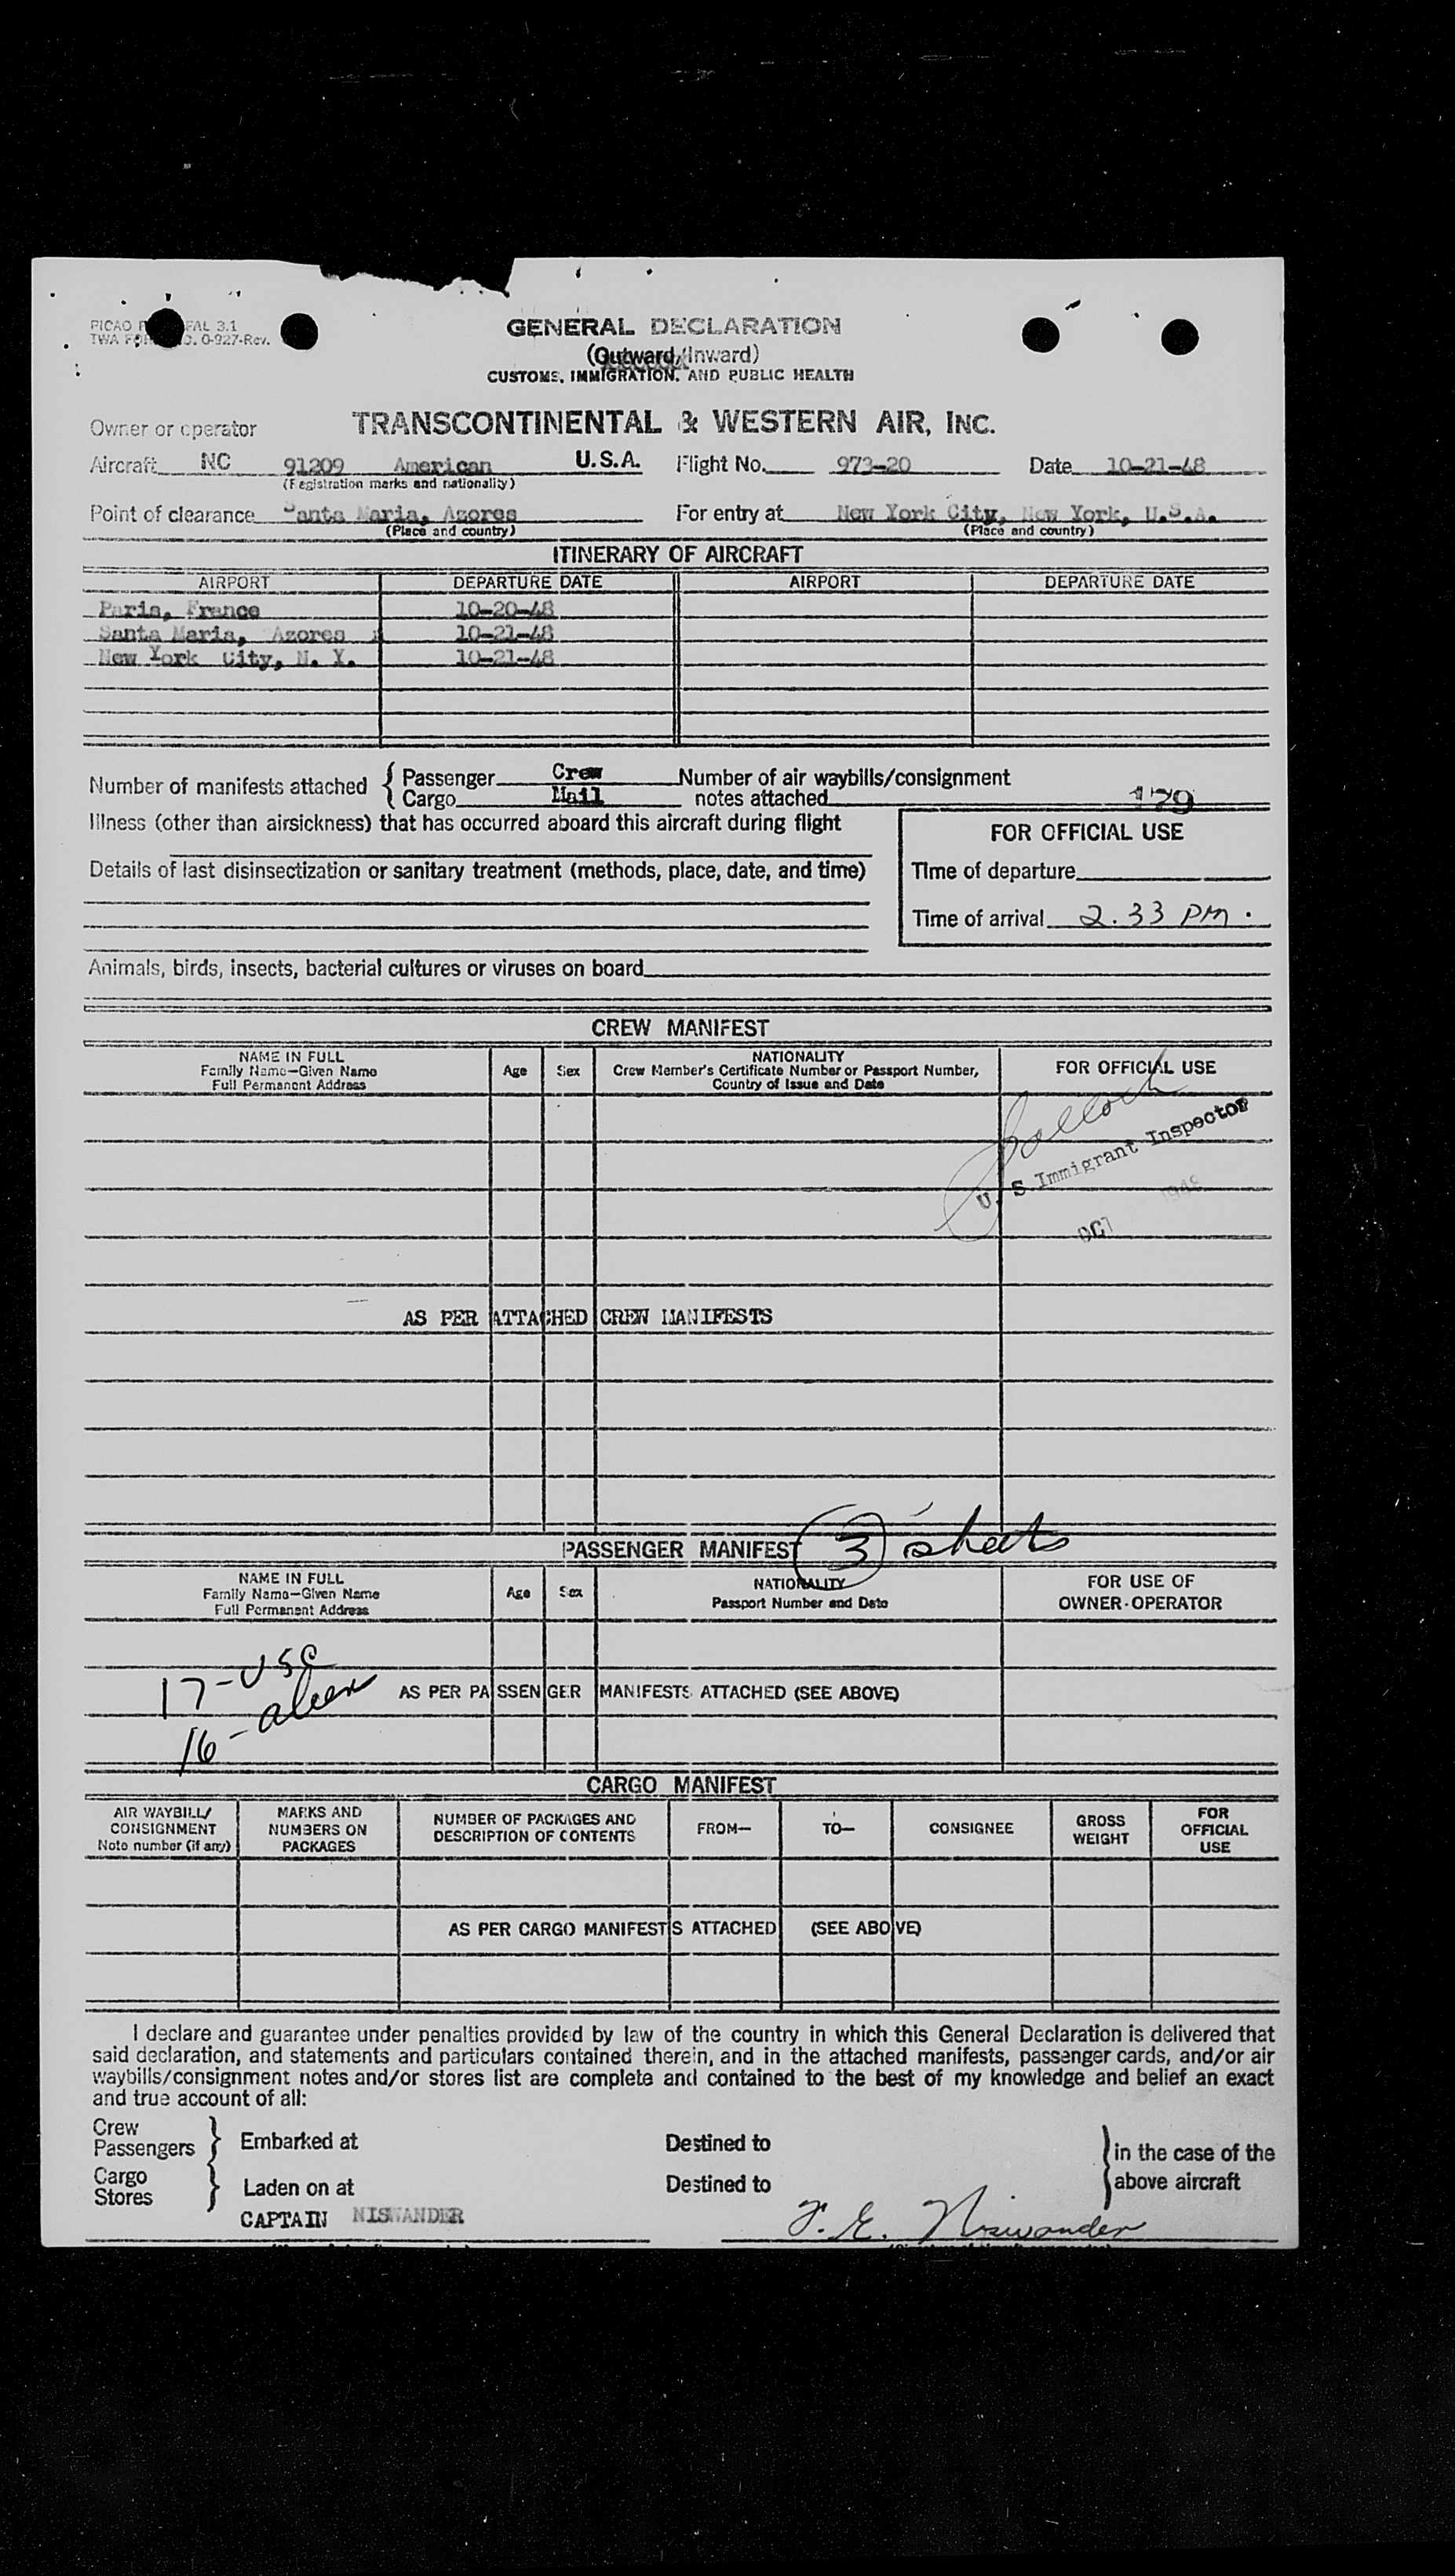 PICAO FAL 3.1
TWA 0-927-Rev.
GENERAL DECLARATION
(Outward/Inward)
CUSTOMS, IMMIGRATION, AND PUBLIC HEALTH
Owner or operator TRANSCONTINENTAL & WESTERN AIR, INC.
Aircraft NC 91209 American U.S.A. Flight No. 973-20 Date 10-21-48
(Registration marks and nationality)
Point of clearance Santa Maria, Azores For entry at New York City, New York, U.S.A.
(Place and country) (Place and country)
ITINERARY OF AIRCRAFT
AIRPORT DEPARTURE DATE AIRPORT DEPARTURE DATE
Paris, France 10-20-48
Santa Maria, Azores 10-21-48
New York City, N. Y. 10-21-48
Number of manifests attached { Passenger Crew Number of air waybills/consignment
Cargo Mail notes attached 179
Illness (other than airsickness) that has occurred aboard this aircraft during flight
FOR OFFICIAL USE
Details of last disinsectization or sanitary treatment (methods, place, date, and time)
Time of departure
Time of arrival 2.33 PM.
Animals, birds, insects, bacterial cultures or viruses on board
CREW MANIFEST
NAME IN FULL
Family Name—Given Name
Full Permanent Address
Age Sex
NATIONALITY
Crew Member's Certificate Number or Passport Number,
Country of Issue and Date
FOR OFFICIAL USE
U. S. Immigrant Inspector
OCT 1948
AS PER ATTACHED CREW MANIFESTS
PASSENGER MANIFEST 3 sheets
NAME IN FULL
Family Name—Given Name
Full Permanent Address
Age Sex
NATIONALITY
Passport Number and Date
FOR USE OF
OWNER-OPERATOR
17-USC
16-alien
AS PER PASSENGER MANIFESTS ATTACHED (SEE ABOVE)
CARGO MANIFEST
AIR WAYBILL/
CONSIGNMENT
Note number (if any)
MARKS AND
NUMBERS ON
PACKAGES
NUMBER OF PACKAGES AND
DESCRIPTION OF CONTENTS
FROM—
TO—
CONSIGNEE
GROSS
WEIGHT
FOR
OFFICIAL
USE
AS PER CARGO MANIFESTS ATTACHED (SEE ABOVE)
I declare and guarantee under penalties provided by law of the country in which this General Declaration is delivered that
said declaration, and statements and particulars contained therein, and in the attached manifests, passenger cards, and/or air
waybills/consignment notes and/or stores list are complete and contained to the best of my knowledge and belief an exact
and true account of all:
Crew
Passengers } Embarked at Destined to
Cargo
Stores } Laden on at Destined to
} in the case of the
above aircraft
CAPTAIN NISWANDER
F. E. Niswander